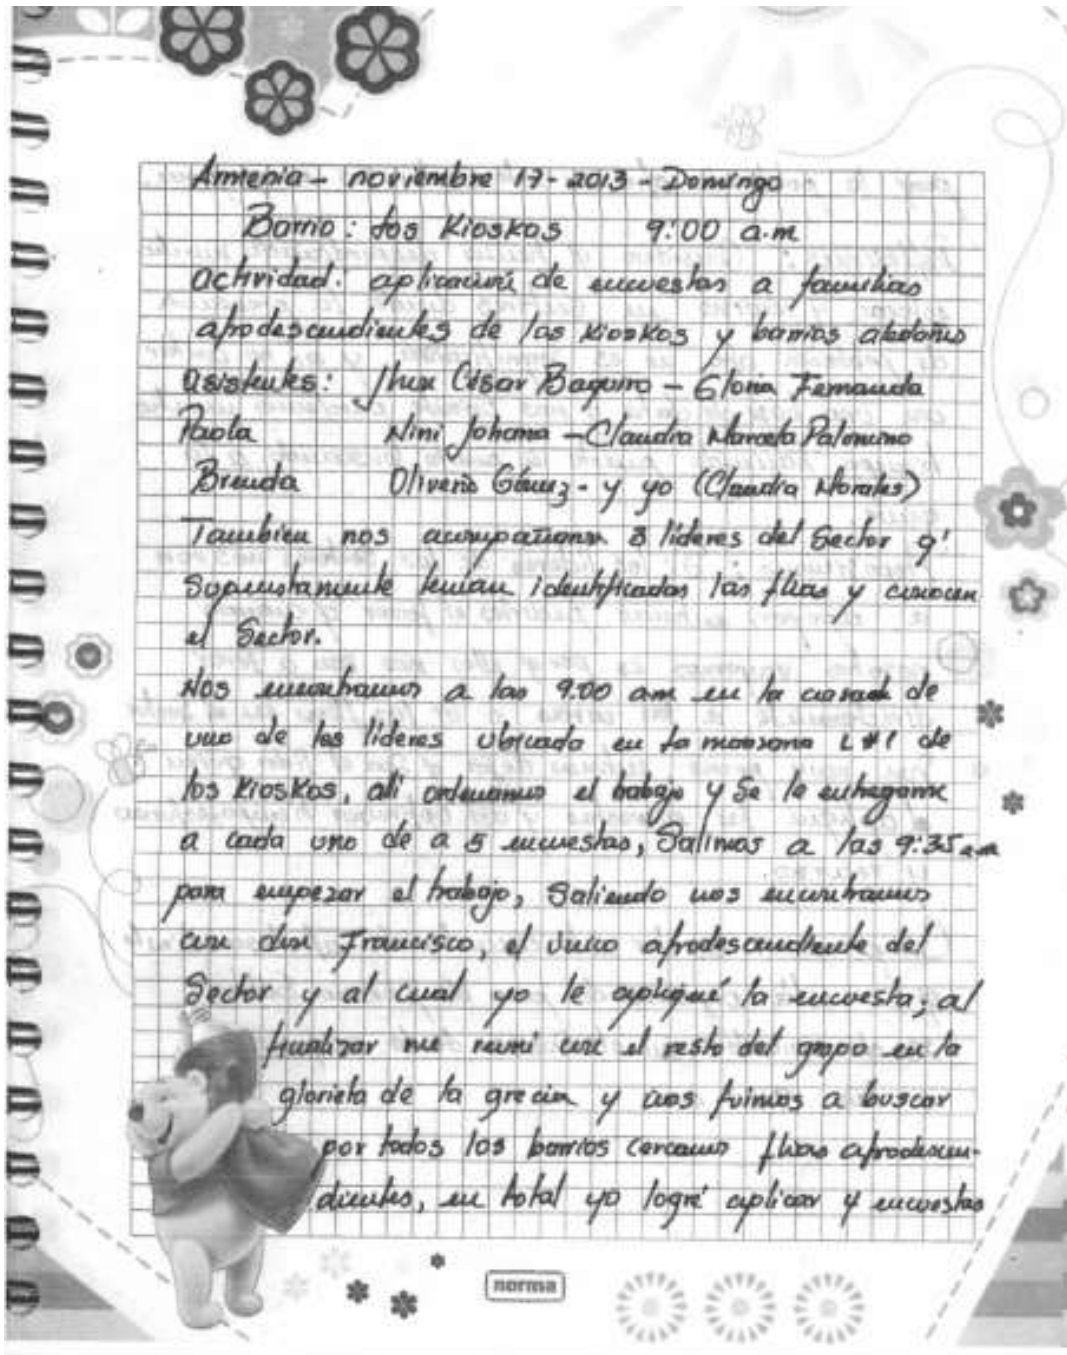 Armenia - noviembre 17 - 2013 - Domingo
Barrio: Los Kioskos 9:00 a.m
actividad: aplicación de encuestas a familias
afrodescendientes de los Kioskos y barrios aledaños
asistentes: Jhon César Baquiro - Gloria Fernanda
Paola Nini Johana - Claudia Marcela Palomino
Brenda Oliverio Gómez - y yo (Claudia Morales)
Tambien nos acompañaron 3 líderes del Sector q'
Supuestamente tenian identificadas las flias y conocen
el Sector.
Nos encontramos a las 9:00 am en la de
uno de los líderes ubicada en la manzana L #1 de
los Kioskos, allí ordenamos el trabajo y Se le entregaron
a cada uno de a 5 encuestas, Salimos a las 9:35 am
para empezar el trabajo, Saliendo nos encontramos
con don Francisco, el único afrodescendiente del
Sector y al cual yo le apliqué la encuesta; al
finalizar me reuní con el resto del grupo en la
glorieta de la grecia y nos fuimos a buscar
por todos los barrios cercanos flias afrodescen-
dientes, en total yo logré aplicar 4 encuestas
norma